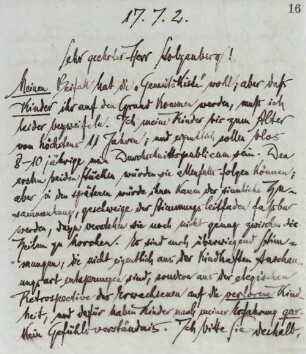 16
17. 7. 2.
Sehr geehrter Herr Holzenberg!
Meinen Beifall hat die „Gemütskiste" wohl; aber daß
Kinder ihr auf den Grund kommen werden, muß ich
leider bezweifeln. Ich meine Kinder bis zum Alter
von höchstens 11 Jahren; und eigentlich sollen blos
8-10jährige Ihr Durchschnittspublicum sein. Den
ersten beiden Stücken würden sie allenfalls folgen können;
aber in den späteren würde ihnen kaum der sinnliche Zu-
sammenhang, geschweige der Stimmungsleitfaden faßbar
werden, dazu verstehn sie noch nicht genug zwischen den
Zeilen zu horchen. Es sind auch überwiegend Stim-
mungen, die nicht eigentlich aus der kindhaften Anschau-
ungsart entsprungen sind, sondern aus der elegischen
Retrospective des Erwachsenen auf die verlorene Kind-
heit, und dafür haben Kinder nach meiner Erfahrung gar
kein Gefühlsverständnis. Ich bitte Sie deshalb